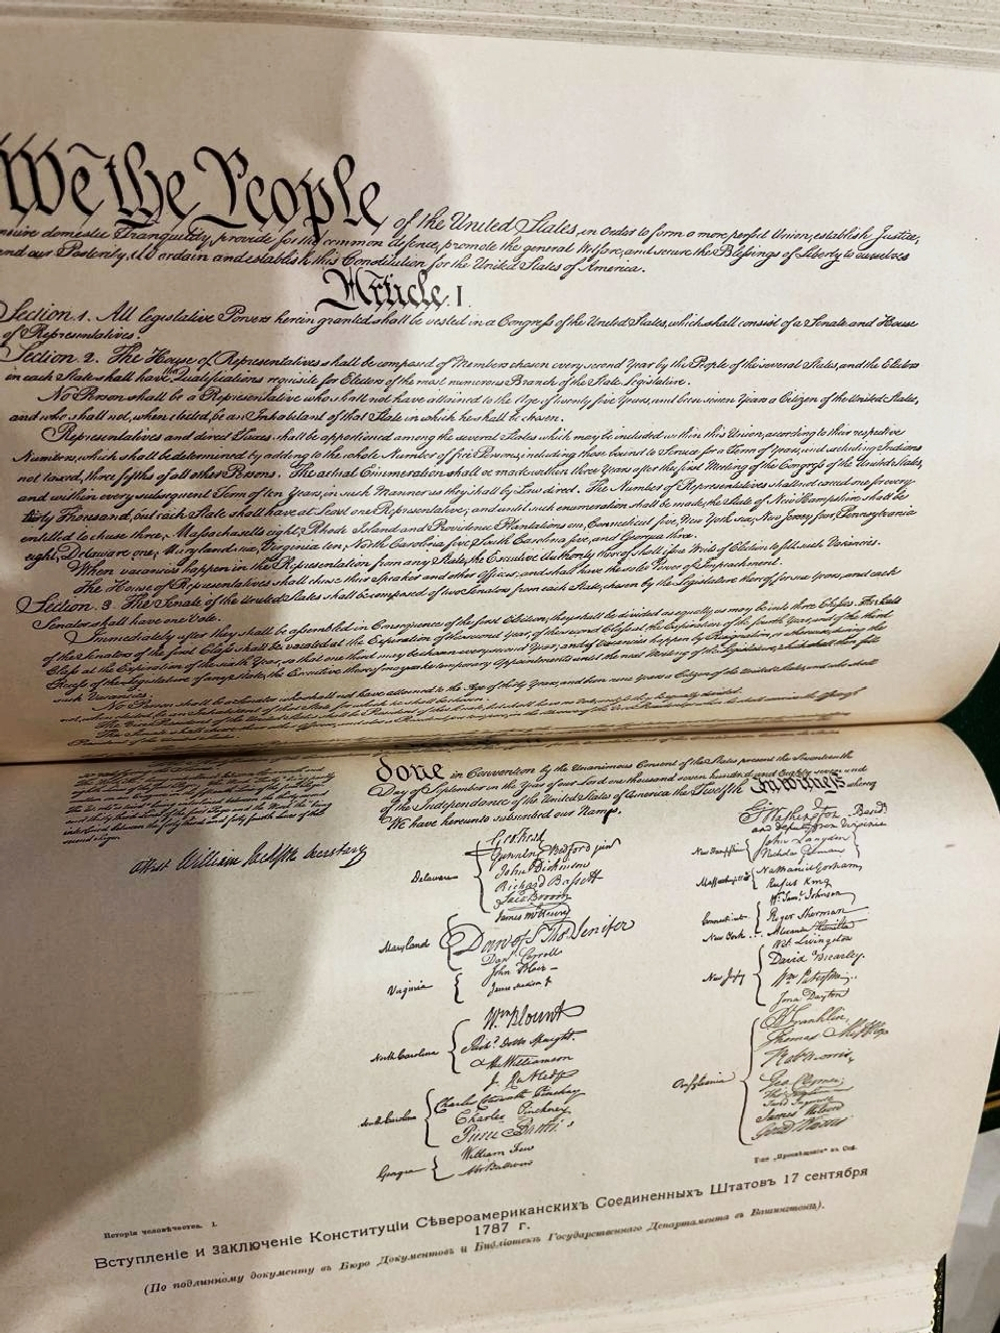 We the People of the United States, in Order to form a more perfect Union, establish Justice,
insure domestic Tranquility, provide for the common defence, promote the general Welfare, and secure the Blessings of Liberty to ourselves
and our Posterity, do ordain and establish this Constitution for the United States of America.
Article. I.
Section. 1. All legislative Powers herein granted shall be vested in a Congress of the United States, which shall consist of a Senate and House
of Representatives.
Section. 2. The House of Representatives shall be composed of Members chosen every second Year by the People of the several States, and the Electors
in each State shall have the Qualifications requisite for Electors of the most numerous Branch of the State Legislature.
No Person shall be a Representative who shall not have attained to the Age of twenty five Years, and been seven Years a Citizen of the United States,
and who shall not, when elected, be an Inhabitant of that State in which he shall be chosen.
Representatives and direct Taxes shall be apportioned among the several States which may be included within this Union, according to their respective
Numbers, which shall be determined by adding to the whole Number of free Persons, including those bound to Service for a Term of Years, and excluding Indians
not taxed, three fifths of all other Persons. The actual Enumeration shall be made within three Years after the first Meeting of the Congress of the United States,
and within every subsequent Term of ten Years, in such Manner as they shall by Law direct. The Number of Representatives shall not exceed one for every
thirty Thousand, but each State shall have at Least one Representative; and until such enumeration shall be made, the State of New Hampshire shall be
entitled to chuse three, Massachusetts eight, Rhode Island and Providence Plantations one, Connecticut five, New York six, New Jersey four, Pennsylvania
eight, Delaware one, Maryland six, Virginia ten, North Carolina five, South Carolina five, and Georgia three.
When vacancies happen in the Representation from any State, the Executive Authority thereof shall issue Writs of Election to fill such Vacancies.
The House of Representatives shall chuse their Speaker and other Officers; and shall have the sole Power of Impeachment.
Section. 3. The Senate of the United States shall be composed of two Senators from each State, chosen by the Legislature thereof for six Years; and each
Senator shall have one Vote.
Immediately after they shall be assembled in Consequence of the first Election, they shall be divided as equally as may be into three Classes. The Seats
of the Senators of the first Class shall be vacated at the Expiration of the second Year, of the second Class at the Expiration of the fourth Year, and of the third
Class at the Expiration of the sixth Year, so that one third may be chosen every second Year; and if Vacancies happen by Resignation, or otherwise, during the
Recess of the Legislature of any State, the Executive thereof may make temporary Appointments until the next Meeting of the Legislature, which shall then fill
such Vacancies.
No Person shall be a Senator who shall not have attained to the Age of thirty Years, and been nine Years a Citizen of the United States, and who shall
done in Convention by the Unanimous Consent of the States present the Seventeenth
Day of September in the Year of our Lord one thousand seven hundred and Eighty seven and
of the Independance of the United States of America the Twelfth In Witness whereof
We have hereunto subscribed our Names,
Attest William Jackson Secretary
Go Washington - Presidt
and deputy from Virginia
Delaware
Geo: Read
Gunning Bedford jun
John Dickinson
Richard Bassett
Jaco: Broom
Maryland
James McHenry
Dan of St Thos Jenifer
Danl Carroll
Virginia
John Blair -
James Madison Jr
North Carolina
Wm Blount
Richd Dobbs Spaight.
Hu Williamson
South Carolina
J. Rutledge
Charles Cotesworth Pinckney
Charles Pinckney
Pierce Butler.
Georgia
William Few
Abr Baldwin
New Hampshire
John Langdon
Nicholas Gilman
Massachusetts
Nathaniel Gorham
Rufus King
Connecticut
Wm Saml Johnson
Roger Sherman
New York
Alexander Hamilton
New Jersey
Wil: Livingston
David Brearley.
Wm Paterson.
Jona: Dayton
Pensylvania
B Franklin
Thomas Mifflin
Robt Morris
Geo. Clymer
Thos FitzSimons
Jared Ingersoll
James Wilson
Gouv Morris
Тип. „Просвѣщеніе“ въ Спб.
Исторія человѣчества. I.
Вступленіе и заключеніе Конституціи Сѣвероамериканскихъ Соединенныхъ Штатовъ 17 сентября
1787 г.
(По подлинному документу въ Бюро Документовъ и Библіотекъ Государственнаго Департамента въ Вашингтонѣ).